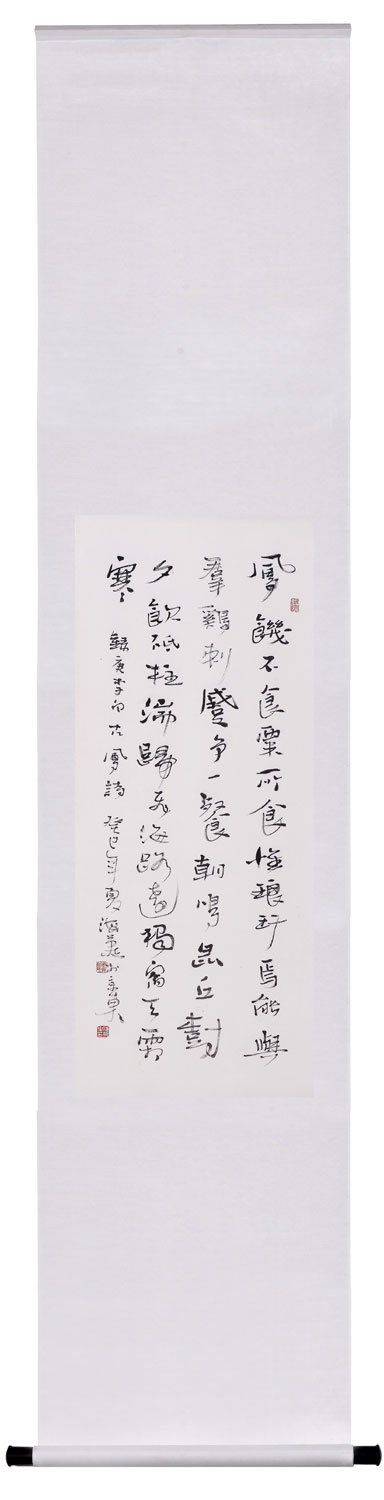 鳳饑不食粟所食惟琅玕焉能與
羣鷄刺蹙争一餐朝鳴昆丘樹
夕飲砥柱湍歸飛海路遠獨宿天霜
寒 錄唐李白古風詩 癸巳年夏